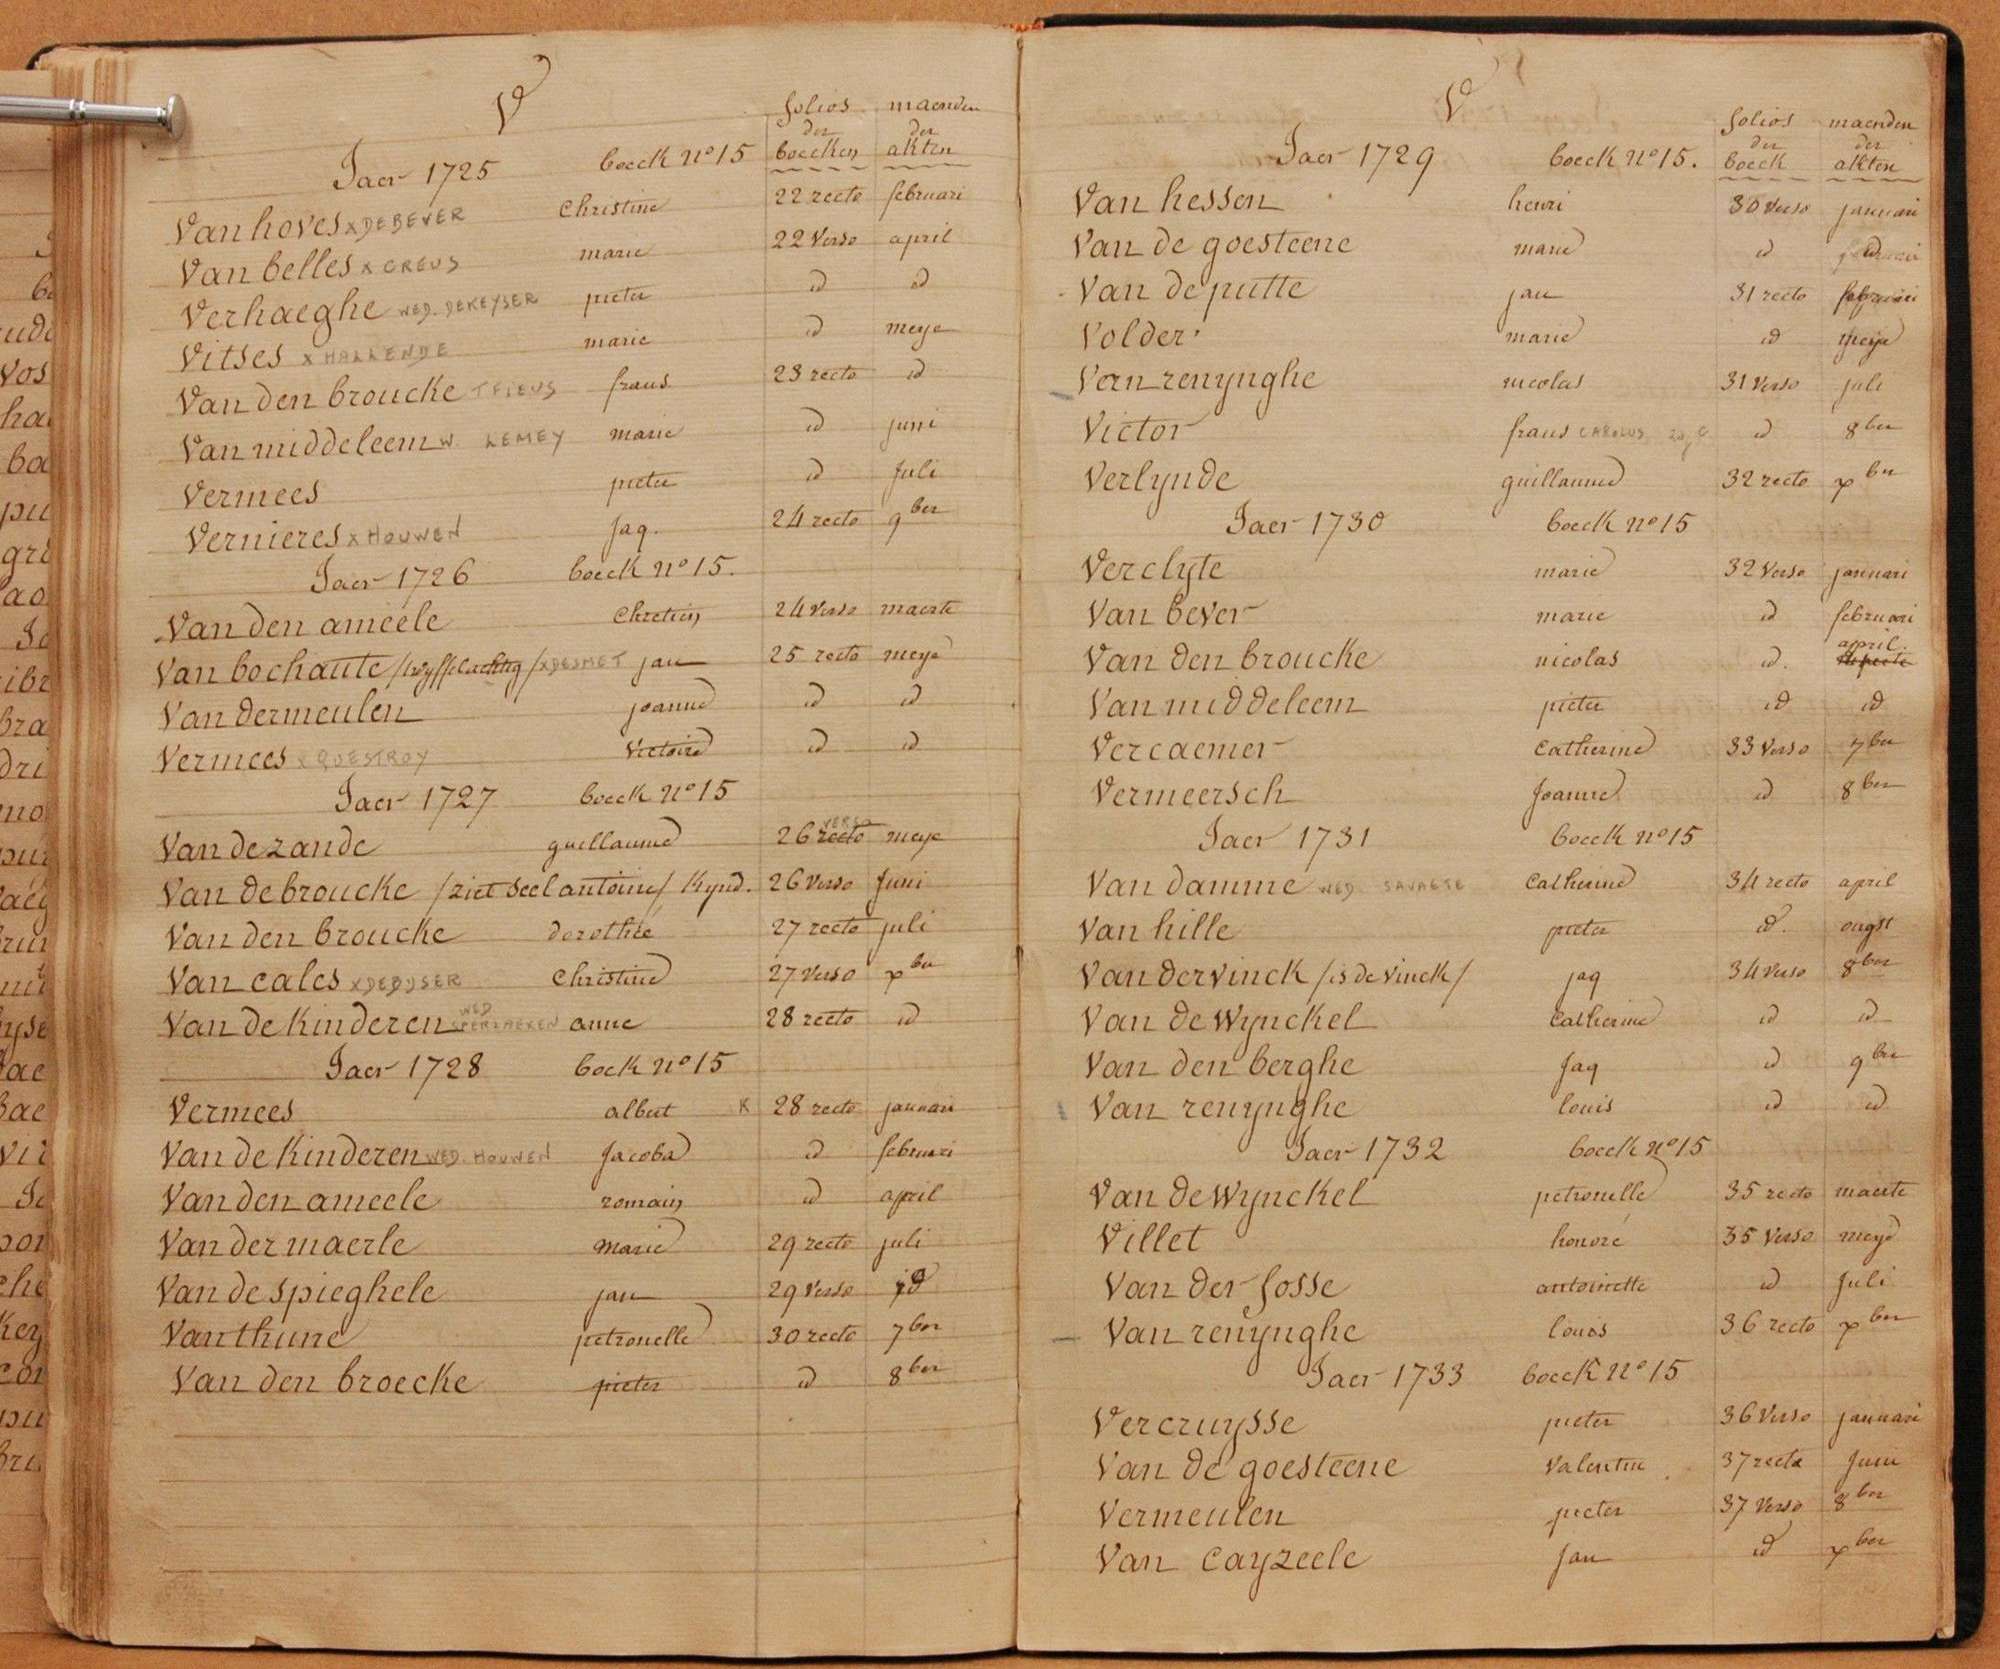 V
folios maenden
der der
Jaer 1725 boeck Nº 15 boecken akten
Vanhoves X DEBEVER Christine 22 recto februari
Van belles X CREUS marie 22 Verso april
Verhaeghe WED. DEKEYSER pieter id id
Vitses X HALLENDE marie id meye
Van den broucke frans 23 recto id
Van middeleem W. LEMEY marie id juni
Vermees pieter id Juli
Vernieres X HOUWEN Jaq. 24 recto 9ber
Jaer 1726 boeck Nº 15.
Van den ameele Chretien 24 Verso maerte
Van bochaute X DESMET jan 25 recto meye
Van dermeulen joanne id id
Vermees X QUESTROY Victoire id id
Jaer 1727 boeck Nº 15
VERSO
Van de zande guillaume 26 recto meye
Van de broucke /ziet seel antoine/ Kynd. 26 Verso Juni
Van den broucke dorothée 27 recto juli
Van cales X DEBYSER Christine 27 Verso xber
WED
Van de Kinderen anne 28 recto id
Jaer 1728 boek Nº 15
Vermees albert K 28 recto januari
Van de Kinderen WED. HOUWEN Jacoba id februari
Van den ameele romain id april
Van der maerle Marie 29 recto juli
Van de spieghele jan 29 Verso id
Van thune petronelle 30 recto 7ber
Van den broecke pieter id 8ber
V
folios maenden
der der
Jaer 1729 boeck Nº 15. boeck akten
Van hessen henri 30 Verso januari
Van de goesteene marie id
Van de putte jan 31 recto februari
Volder marie id meye
Vern renynghe nicolas 31 Verso juli
Victor frans CAROLUS id 8ber
Verlynde guillaume 32 recto xber
Jaer 1730 boeck Nº 15
Verclyte marie 32 Verso januari
Van bever marie id februari
april
Van den broucke nicolas id.
Van middeleem pieter id id
Vercaemer Catherine 33 Verso 7ber
Vermeersch Joanne id 8ber
Jaer 1731 boeck Nº 15
Van damme WED. SAVAETE Catherine 34 recto april
Van hille pieter id. ougst
Van dervinck /is de Vinck/ jaq 34 Verso 8ber
Van de Wynckel Catherine id id
Van den berghe Jaq id 9ber
Van renynghe louis id id
Jaer 1732 boeck Nº 15
Van de Wynckel petronelle 35 recto maerte
Villet honoré 35 Verso meye
Van der fosse antoinette id Juli
Van renynghe louis 36 recto xber
Jaer 1733 boeck Nº 15
Vercruysse pieter 36 Verso januari
Van de goesteene Valentin 37 recto Juni
Vermeulen pieter 37 Verso 8ber
Van Cayzeele Jan id xber